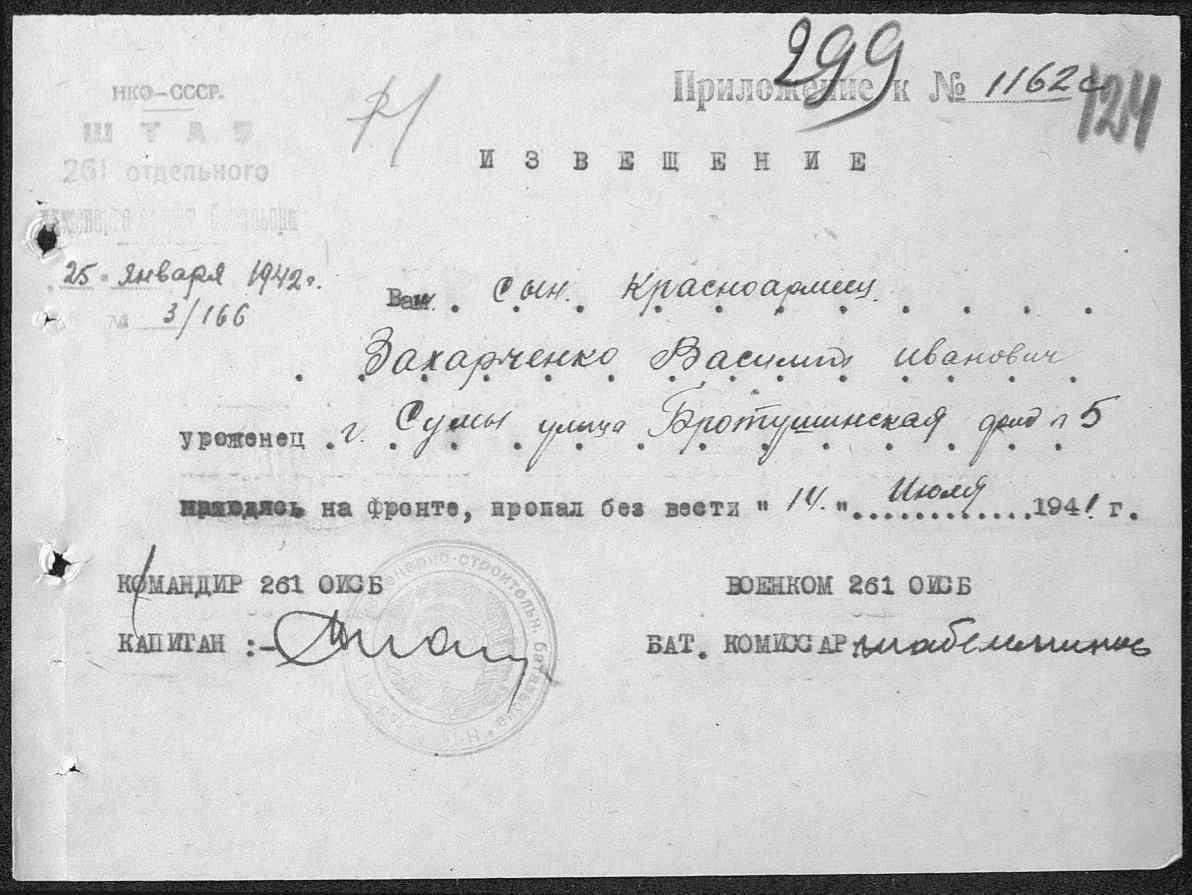 299
Приложение к № 1162с
124
НКО-СССР.
ШТАБ
261 отдельного
ИЗВЕЩЕНИЕ
25 января 1942г.
№ 3/166
Ваш сын красноармеец
Захарченко Василий Иванович
уроженец г. Сумы улица Бротушинская дом № 5
находясь на фронте, пропал без вести "14." Июля 1941 г.
КОМАНДИР 261 ОИСБ
ВОЕНКОМ 261 ОИСБ
КАПИТАН :-
БАТ. КОМИССАР